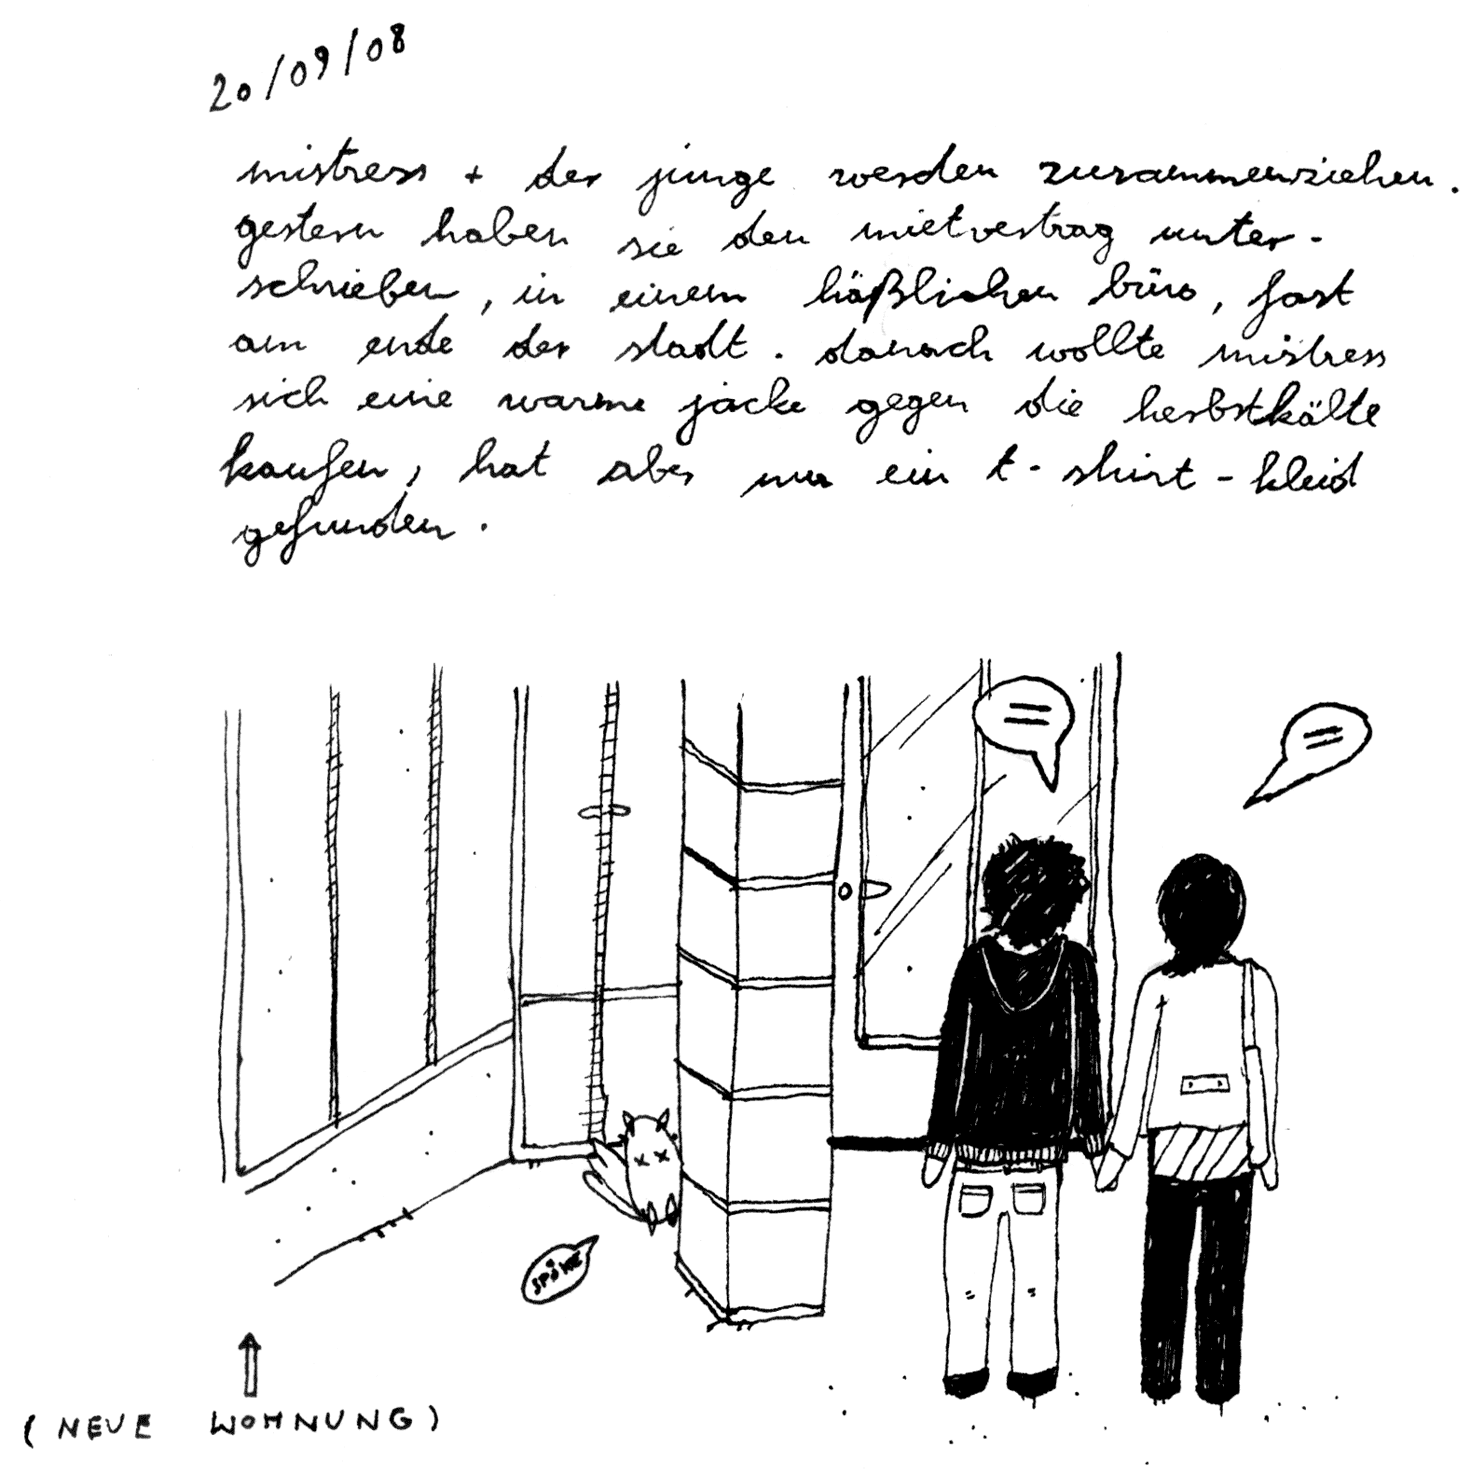 20/09/08
mistress + der junge werden zusammenziehen.
gestern haben sie den mietvertrag unter-
schrieben, in einem häßlichen büro, fast
am ende der stadt. danach wollte mistress
sich eine warme jacke gegen die herbstkälte
kaufen, hat aber nur ein t-shirt-kleid
gefunden.
(NEUE WOHNUNG)